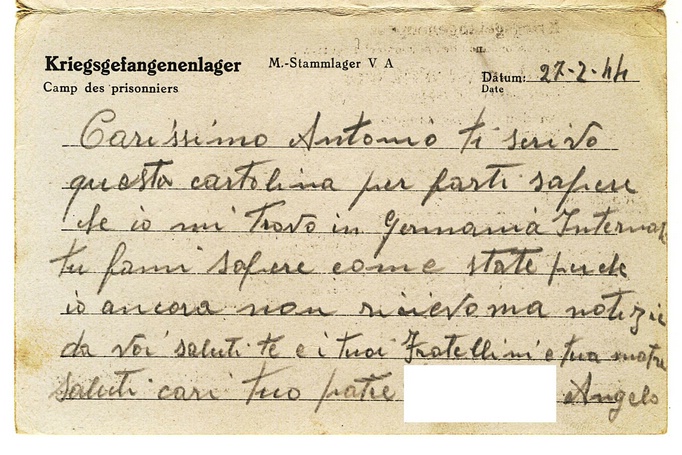 Kriegsgefangenenlager M.-Stammlager V A
Camp des prisonniers
Datum: 27-2-44
Date
Carissimo Antonio ti scrivo
questa cartolina per farti sapere
che io mi trovo in Germania Internat
tu fami sapere come state perche
io ancora non ricievo ma notizie
da voi saluti te e i tuoi Fratellini e tua matre
saluti cari tuo patre Angelo